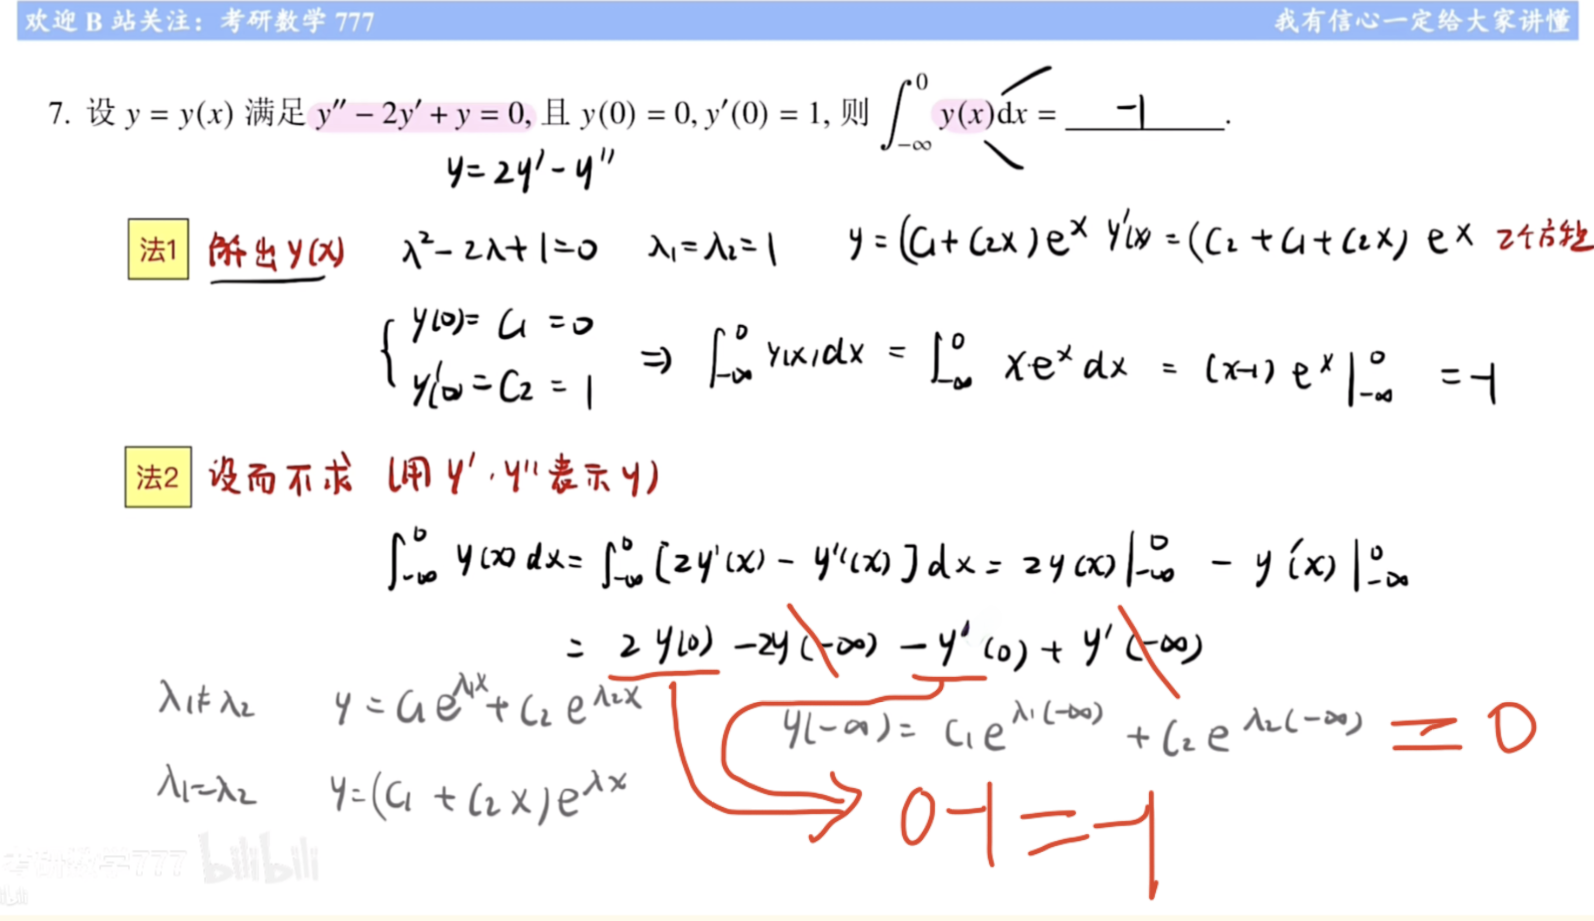 欢迎 B 站关注：考研数学 777
我有信心一定给大家讲懂
7. 设 y = y(x) 满足 y″ − 2y′ + y = 0, 且 y(0) = 0, y′(0) = 1, 则 ∫_{-∞}^{0} y(x)dx = -1 .
y = 2y′ - y″
法1 解出 y(x) λ² - 2λ + 1 = 0 λ₁ = λ₂ = 1 y = (C₁ + C₂x)eˣ y′(x) = (C₂ + C₁ + C₂x) eˣ 2个方程
{ y(0) = C₁ = 0
y′(0) = C₂ = 1 ⇒ ∫_{-∞}^{0} y(x)dx = ∫_{-∞}^{0} x·eˣ dx = (x-1) eˣ |_{-∞}^{0} = -1
法2 设而不求 (用 y′, y″ 表示 y)
∫_{-∞}^{0} y(x) dx = ∫_{-∞}^{0} [2y′(x) - y″(x)] dx = 2y(x)|_{-∞}^{0} - y′(x)|_{-∞}^{0}
= 2y(0) - 2y(-∞) - y′(0) + y′(-∞)
λ₁ ≠ λ₂ y = C₁e^{λ₁x} + C₂e^{λ₂x} y(-∞) = C₁e^{λ₁(-∞)} + C₂e^{λ₂(-∞)} = 0
λ₁ = λ₂ y = (C₁ + C₂x)e^{λx} 0-1=-1
考研数学777 bilibili
bili